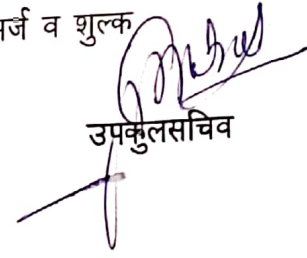 र्ज व शुल्क
उपकुलसचिव